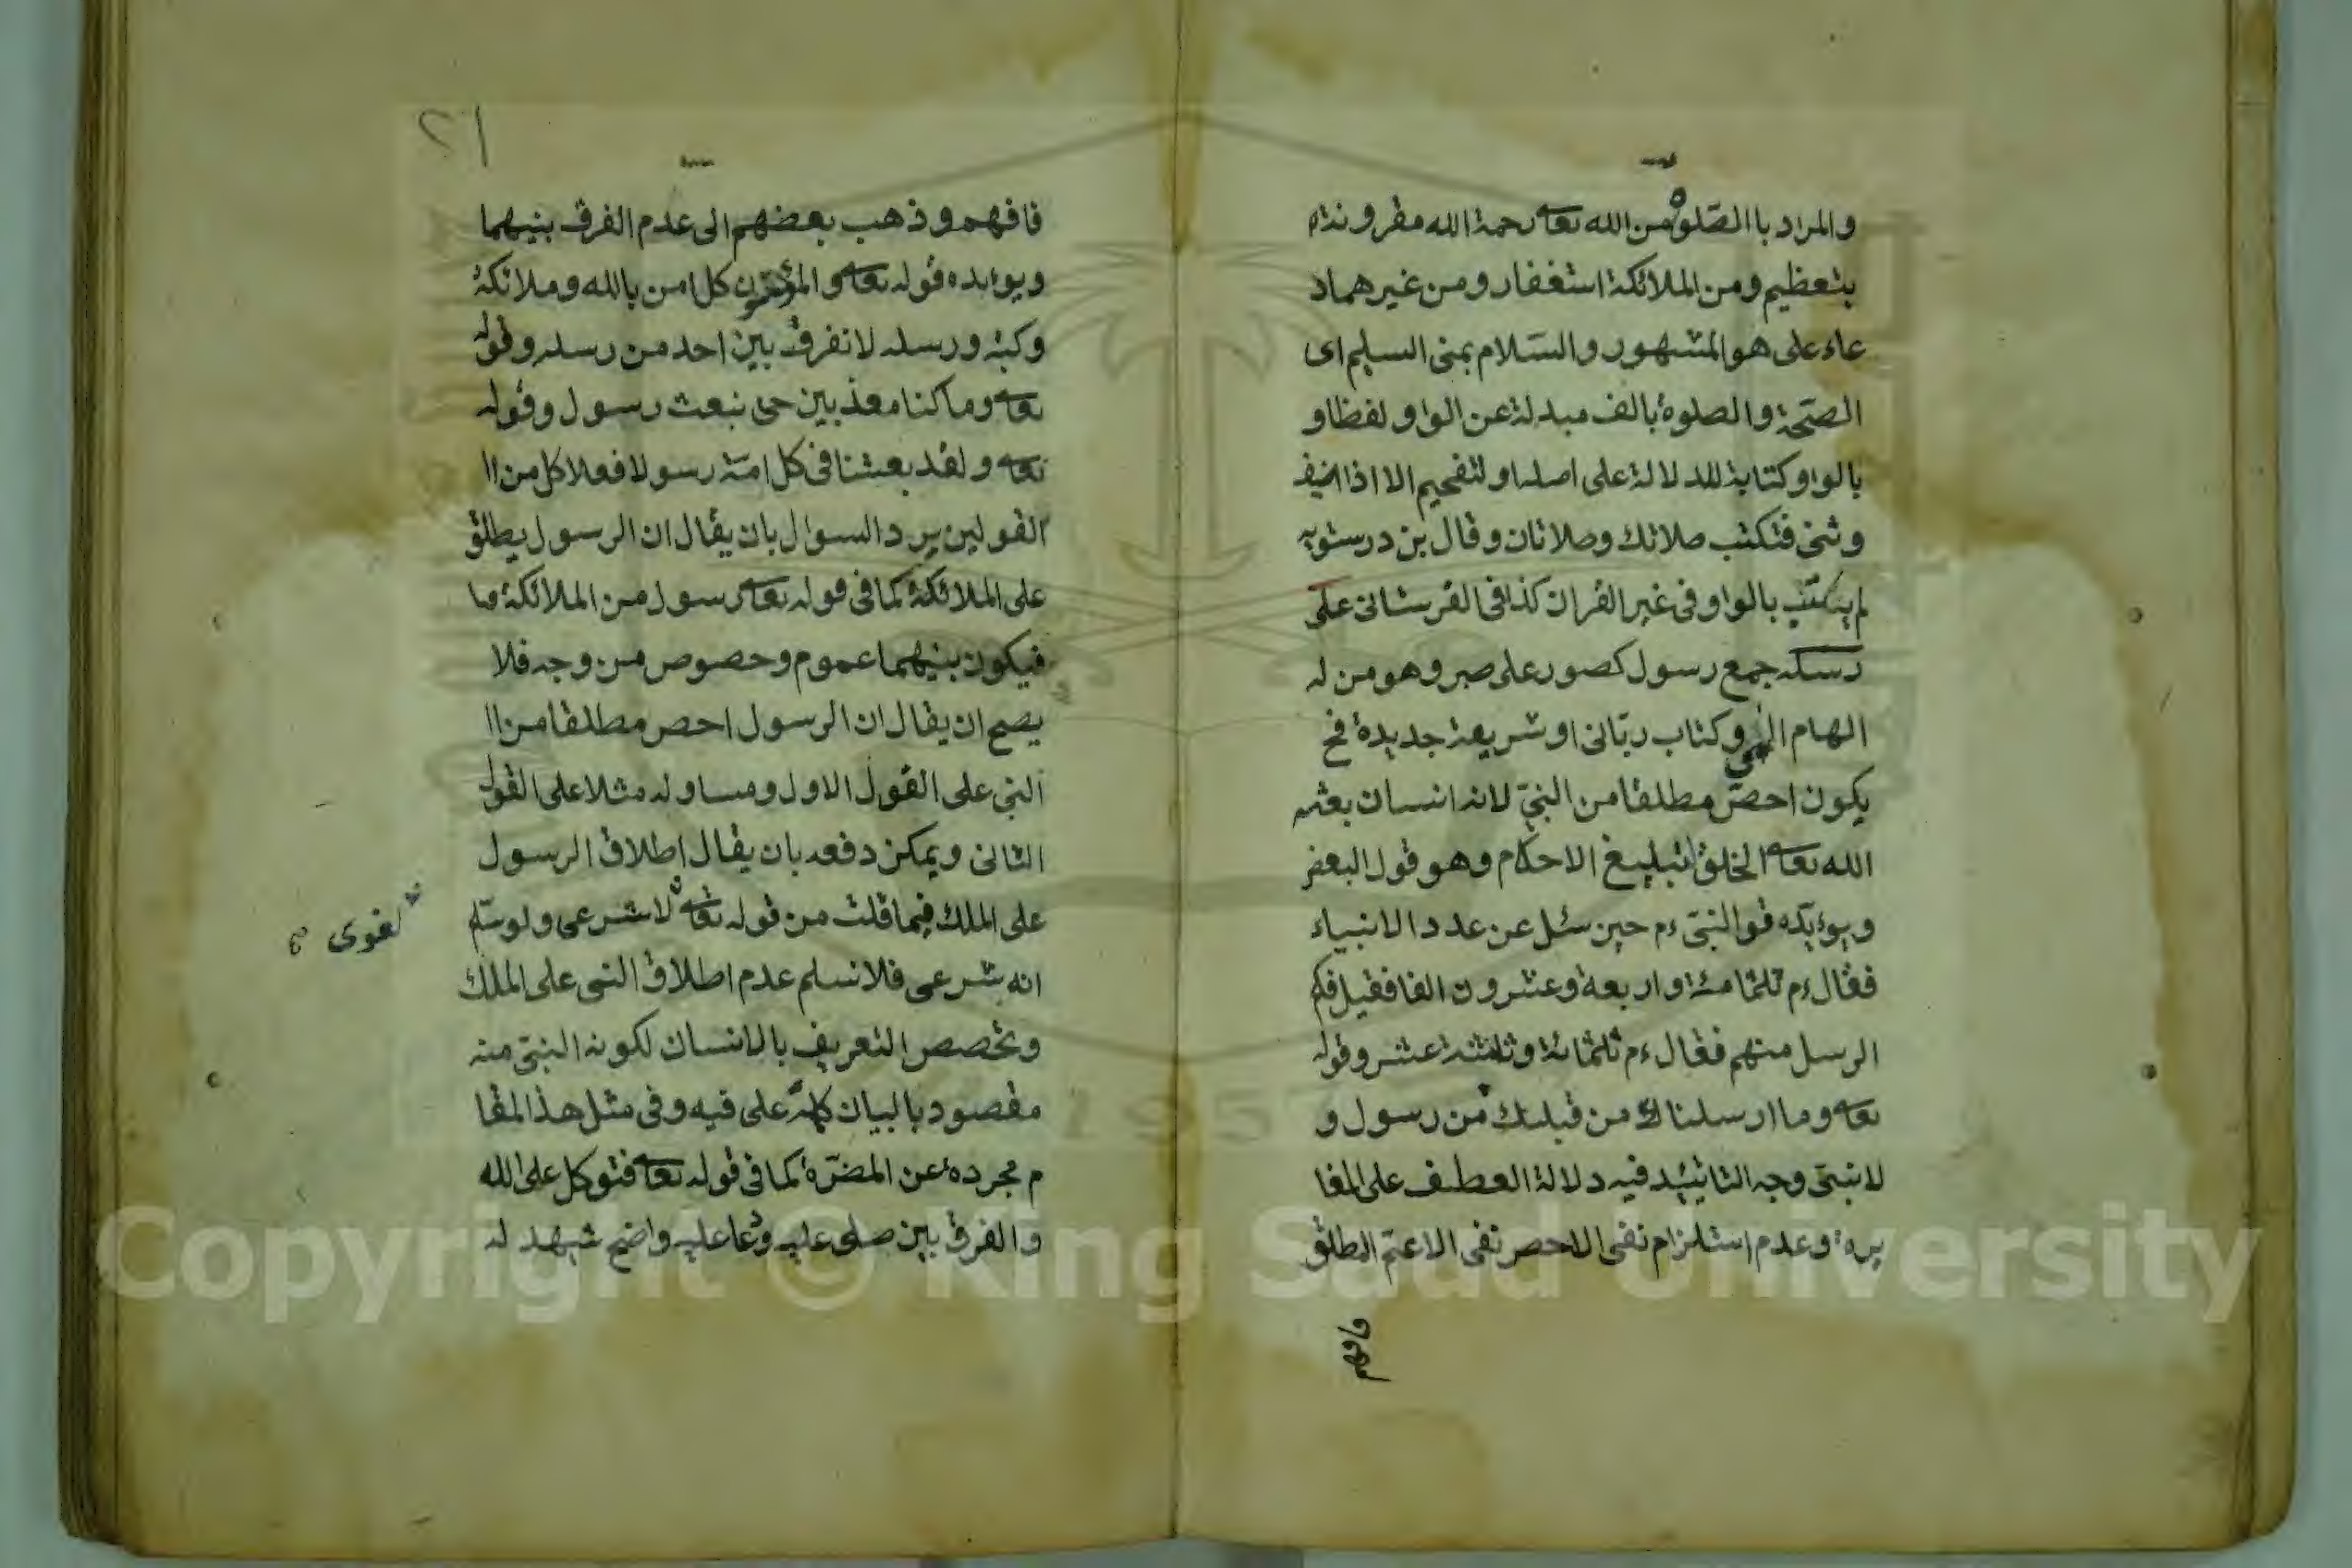 والمراد با الصّلوة من الله تعا رحمة الله مقرونة
بتعظيم ومن الملائكة استغفار ومن غيرهما د
عاء على هو المشهور والسّلام بمنى السليم اى
الصحّة والصلوة بالف مبدلة عن الواو لفظا و
بالواو كتابة للدلالة على اصله او لتفخيم الا اذا اضيف
وثنى فتكتب صلاتك وصلاتان وقال بن درستويه
لم يكتب بالواو فى غير القران كذا فى القرستانى على
رسله جمع رسول كصور على صبر وهو من له
الهام الهى وكتاب ربّانى او شريعة جديدة فح
يكون احصّ مطلقا من النبىّ لانه انسان بعثه
الله تعا الخلق لتبليغ الاحكام وهو قول البعض
ويوءيّده قو النبىّ ءم حين سئل عن عدد الانبياء
فقال ءم ثلثمامئة واربعة وعشرون الفا فقيل فكم
الرسل منهم فقال ءم ثلثمائة وثلثة عشر وقوله
تعا وما ارسلنا من قبلك من رسول و
لا نبىّ وجه التائيد فيه دلالة العطف على المغا
يرة وعدم استلزام نفى الاحصر نفى الاعمّ المطلق
فافهم
٢١
فافهم وذهب بعضهم الى عدم الفرق بنيهما
ويوءيده قوله تعا والمؤمنون كل امن بالله وملائكة
وكتبه ورسله لا نفرق بين احد من رسله وقوله
تعا وما كنا معذبين حى نبعث رسول وقوله
تعا ولقد بعثنا فى كل امّة رسولا فعلا كل من ا
القولين يرد السوال بان يقال ان الرسول يطلق
على الملائكة كما فى قوله تعا رسول من الملائكة ما
فيكون بنيهما عموم وحصوص من وجه فلا
يصح ان يقال ان الرسول احصر مطلقا من ا
النبى على القول الاول ومساو له مثلا على القول
الثانى ويمكن دفعه بان يقال اطلاق الرسول
على الملك فيما قلت من قوله تعا لا شرعى ولو سلّم
لغوى
انه شرعى فلا نسلم عدم اطلاق النبى على الملك
وتحصص التعريف بالانسان لكونه النبىّ منه
مقصود بالبيان كلمة على فيه وفى مثل هذا المقا
م مجرده عن المضرّة كما فى قوله تعا فتوكل على الله
والفرق بين صلى عليه ودعا عليه واضح شهد له
Copyright © King Saud University
1957